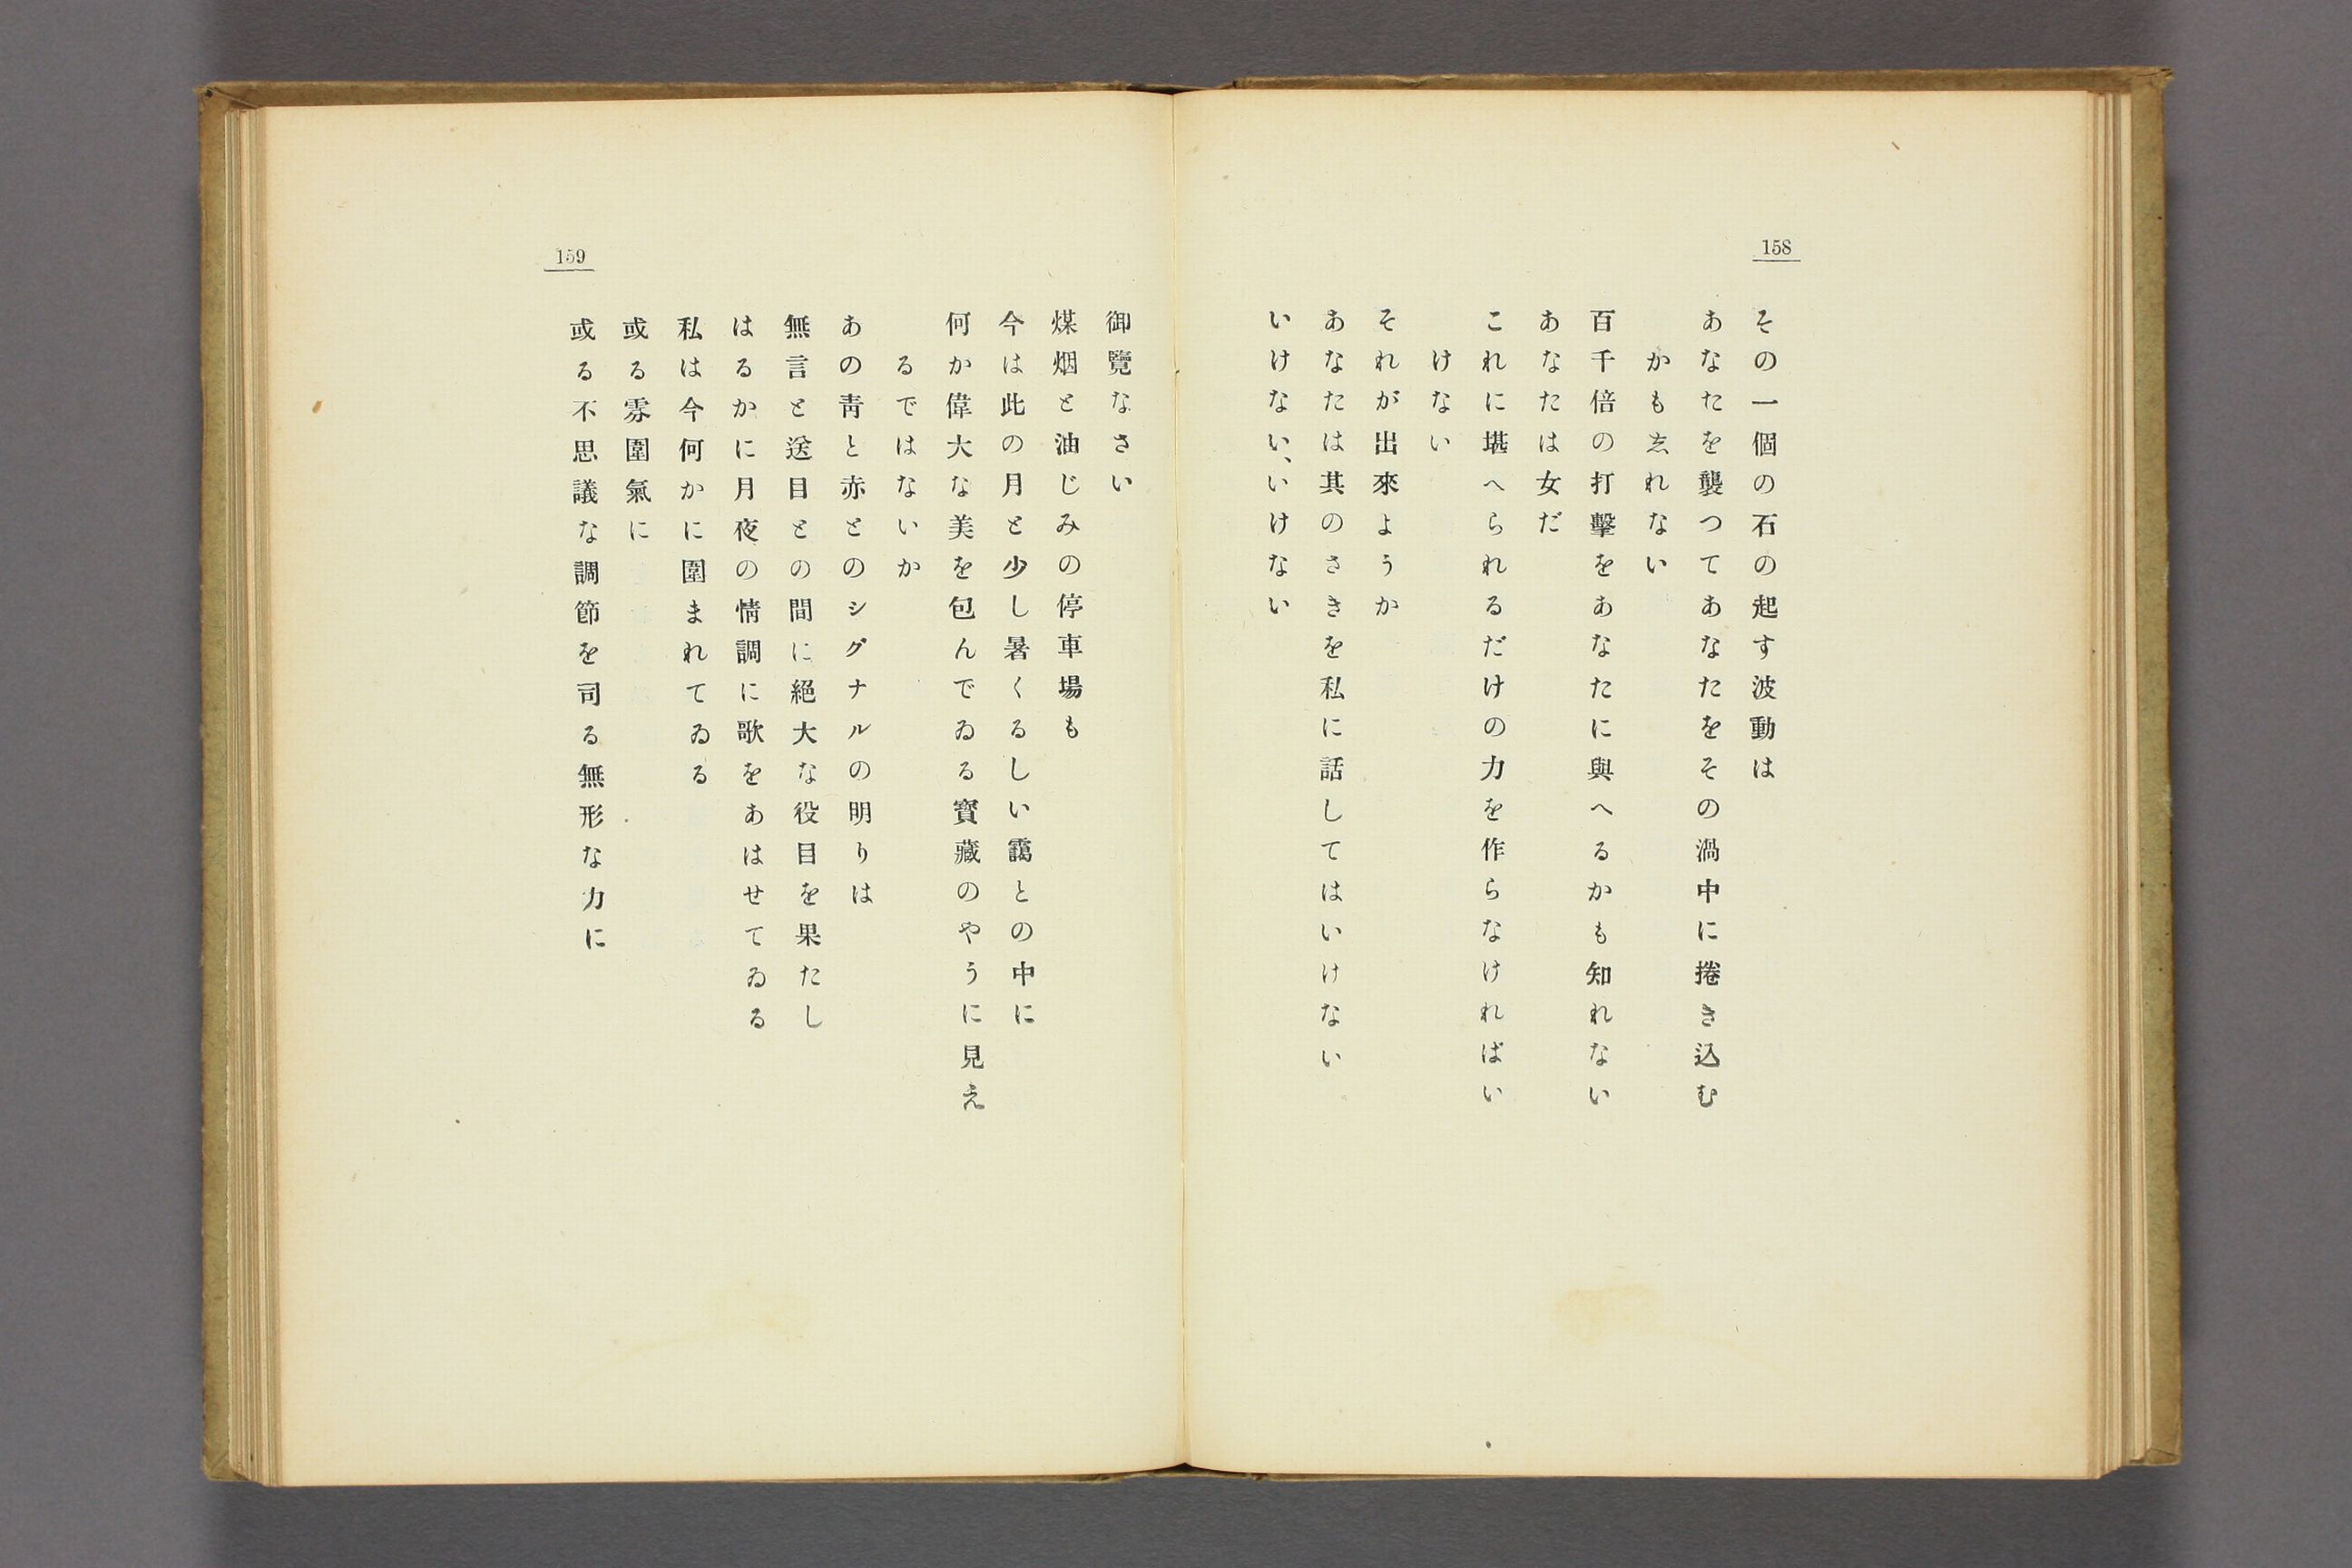 158
その一個の石の起す波動は
あなたを襲つてあなたをその渦中に捲き込む
かも志れない
百千倍の打擊をあなたに與へるかも知れない
あなたは女だ
これに堪へられるだけの力を作らなければい
けない
それが出來ようか
あなたは其のさきを私に話してはいけない
いけない、いけない
159
御覽なさい
煤烟と油じみの停車場も
今は此の月と少し暑くるしい靄との中に
何か偉大な美を包んでゐる寳藏のやうに見え
るではないか
あの靑と赤とのシグナルの明りは
無言と送目との間に絕大な役目を果たし
はるかに月夜の情調に歌をあはせてゐる
私は今何かに圍まれてゐる
或る雰圍氣に
或る不思議な調節を司る無形な力に